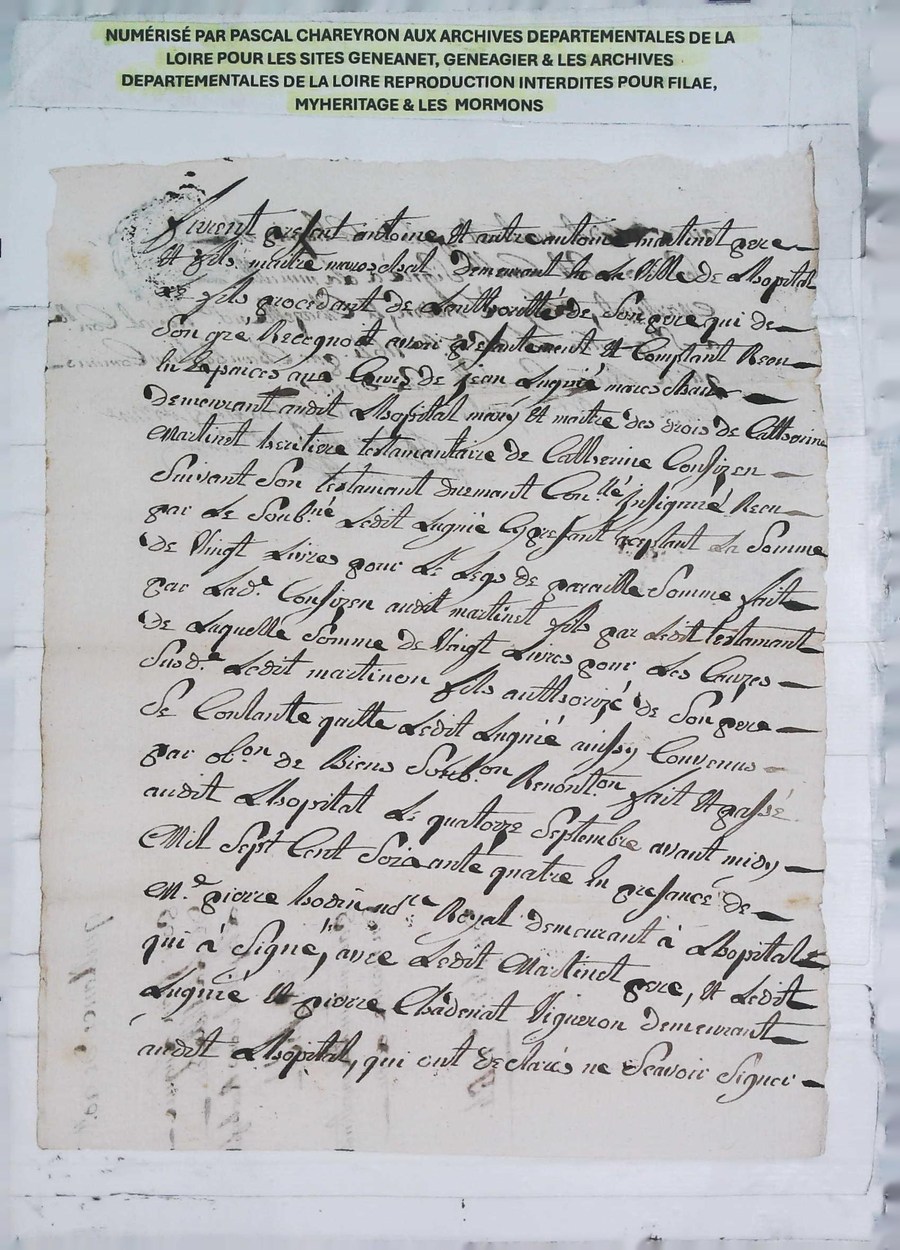 NUMÉRISÉ PAR PASCAL CHAREYRON AUX ARCHIVES DEPARTEMENTALES DE LA
LOIRE POUR LES SITES GENEANET, GENEAGIER & LES ARCHIVES
DEPARTEMENTALES DE LA LOIRE REPRODUCTION INTERDITES POUR FILAE,
MYHERITAGE & LES MORMONS
furent present antoine, Et autre antoine martinet pere
Et fils maitre mareschal demeurant En La Ville de Lhopital
Le fils procedant de Lauthorité de Son pere qui de
Son gré Recognoit avoir presentement Et Comptant Receu
En Espances aux Cours de jean Lugnié mareschand
demeurant audit Lhopital mary Et maitre des drois de Catherine
Martinet heritiere testamantaire de Catherine Consizen
Suivant Son testamant duemant Con.llé insignuué Receu
par Le Soub.né Ledit Lugnié Cy present aceptant La Somme
de Vingt Livres pour Le Legs de pareille Somme fait
par Lad.e Consizen audit martinet fils par Ledit testamant
de Laquelle Somme de Vingt Livres pour Les Causes
Susd.e Ledit martinon fils authorizé de Son pere
Se Contante quitte Ledit Lugnié ainssy Convenus
par ob.on de Biens Soub.on Renont.on fait Et passé
audit Lhopital Le quatorze Septembre avant midy
Mil Sept Cent Soixante quatre En presance de
M.e pierre no.re Royal demeurant à Lhopital
qui à Signé, avec Ledit Martinet pere, Et Ledit
Lugnié Et pierre Chadenat Vigneron demeurant
audit Lhopital, qui ont declarés ne Scavoir Signer